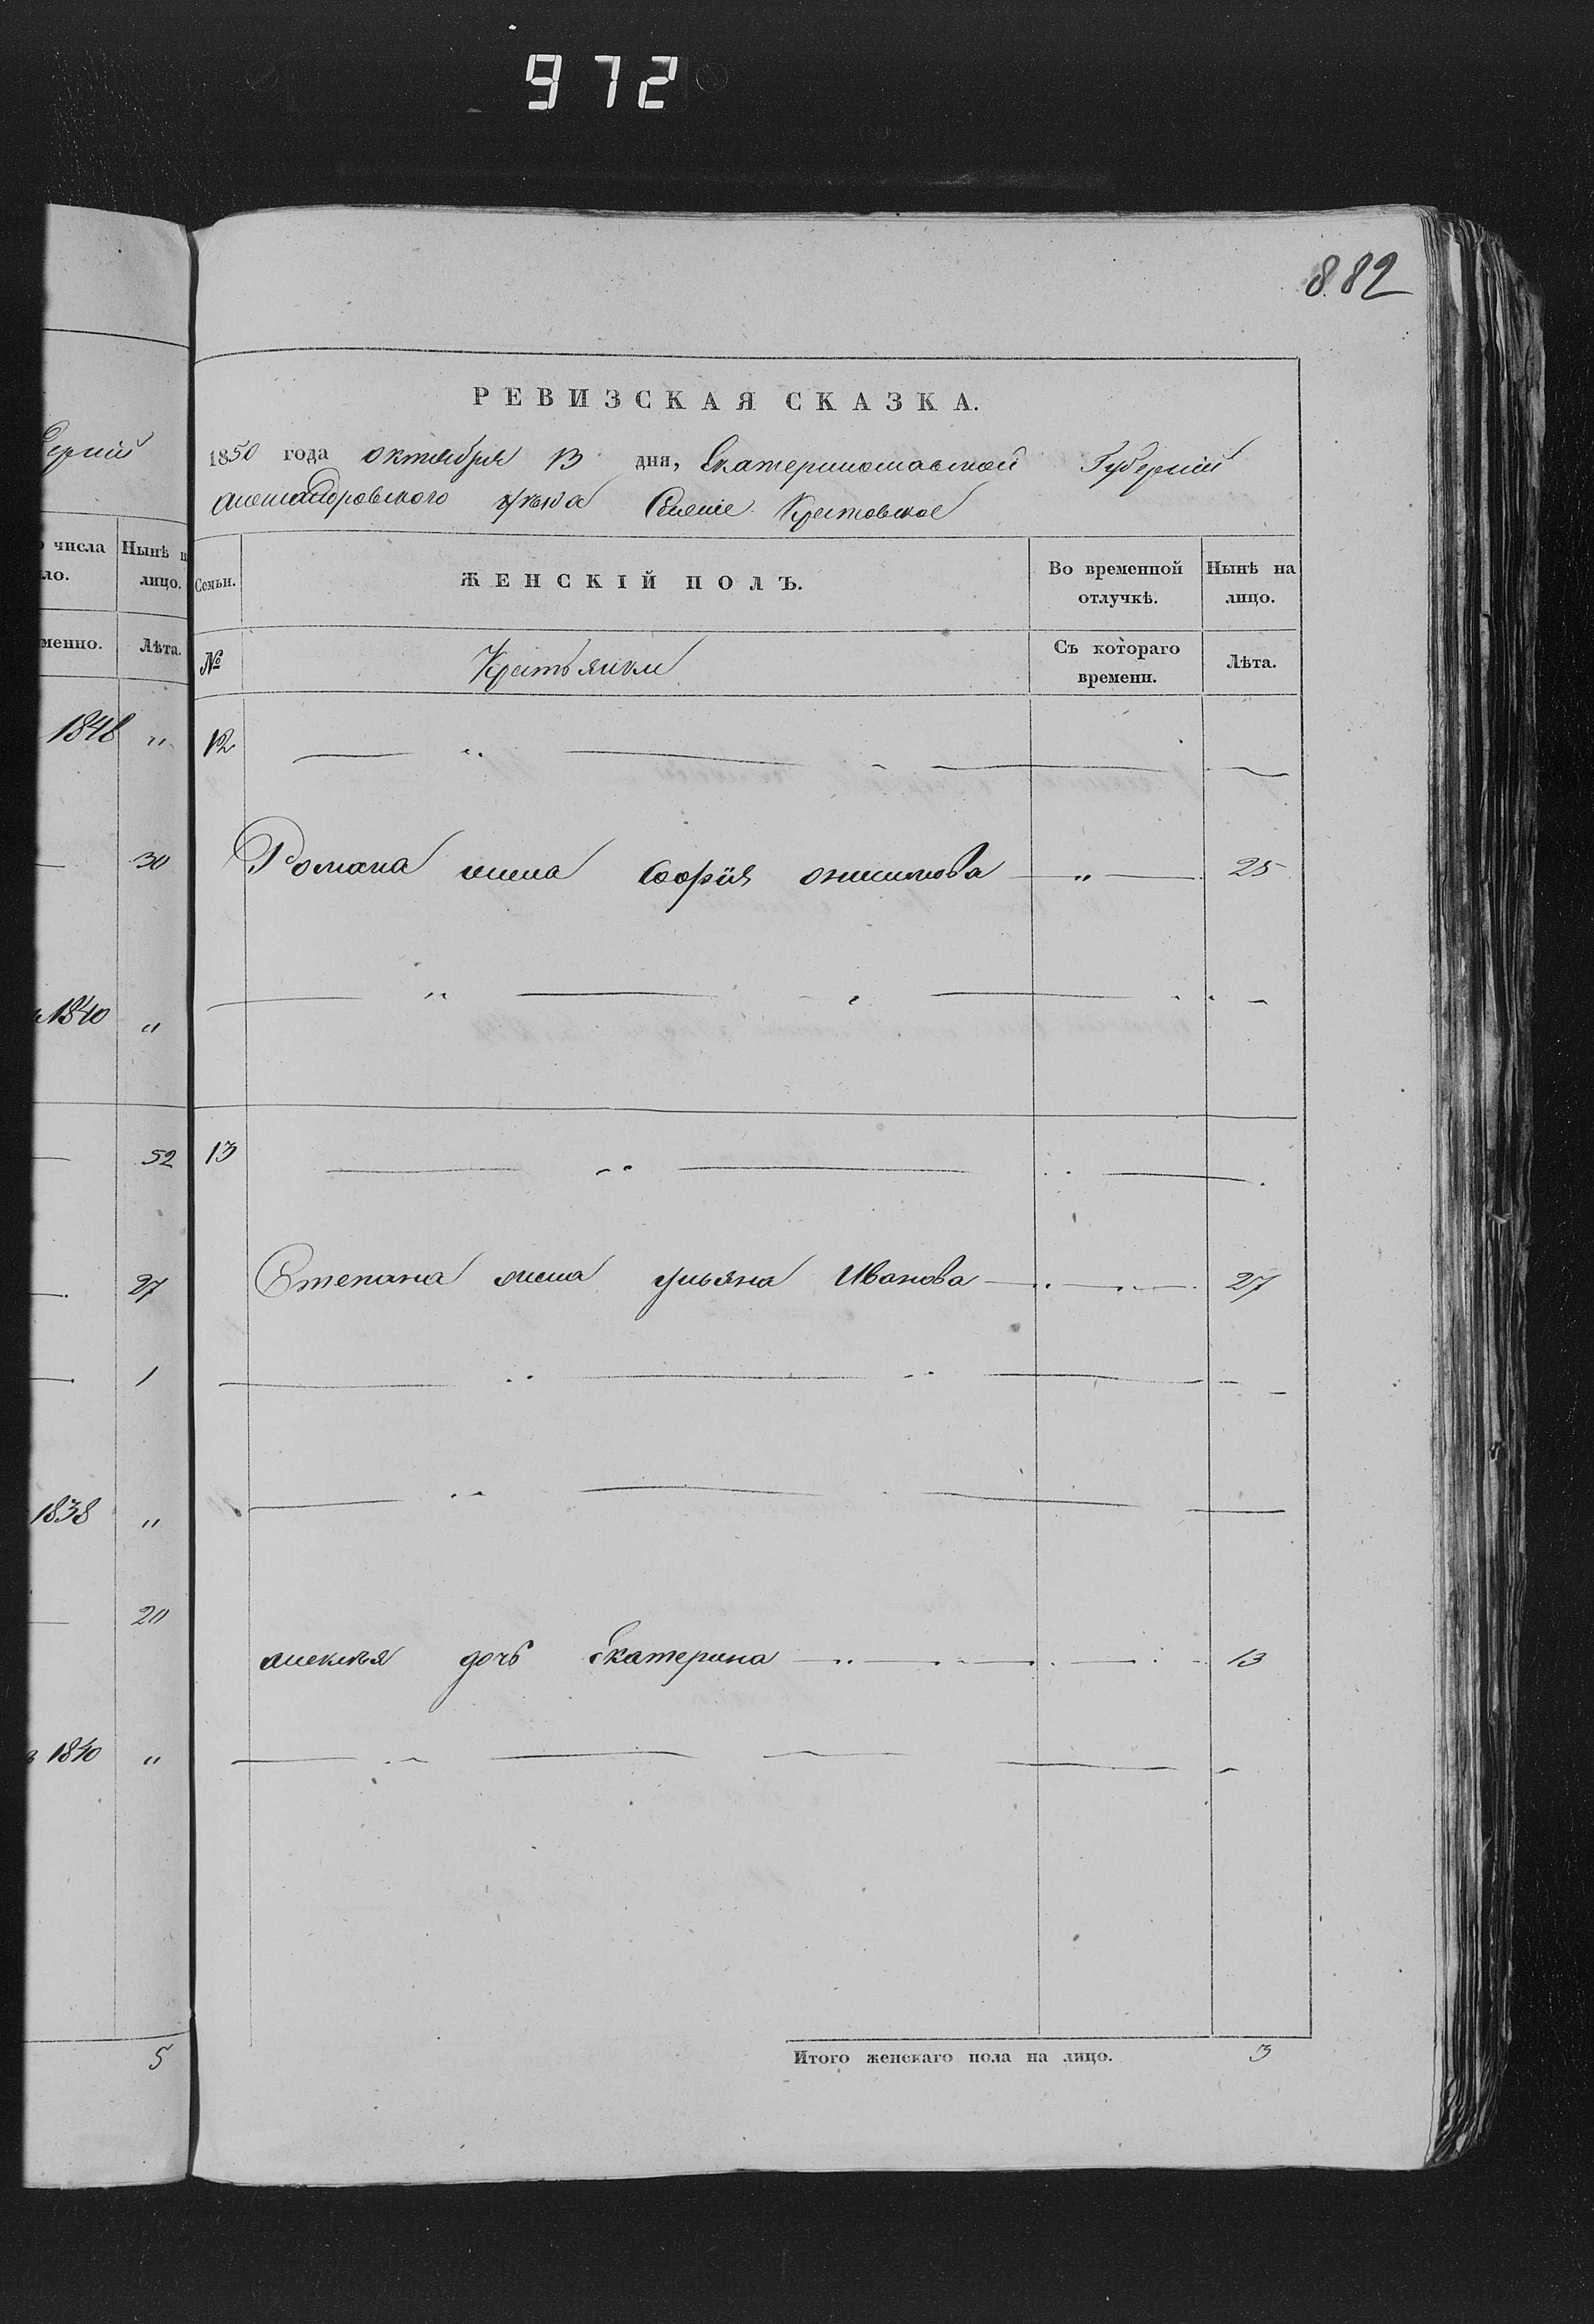 972
882
ерніи
РЕВИЗСКАЯ СКАЗКА.
1850 года октября 13 дня, Екатеринославской Губерніи
александровского уѣзда Селеніе Крестовское
числа
ло.
Нынѣ н
лицо.
Семьи.
ЖЕНСКІЙ ПОЛЪ.
Во временной
отлучкѣ.
Нынѣ на
лицо.
менно.
Лѣта.
№
Крестьянки
Съ котораго
времени.
Лѣта.
1848 "
12 "
30
Романа жена софія онисимова " 25
1840 "
"
52
13 "
27
Степана жена ульяна Иванова " 27
1
"
1838 "
"
20
алексѣя дочь екатерина " 13
1840 "
"
5
Итого женскаго пола на лицо. 3